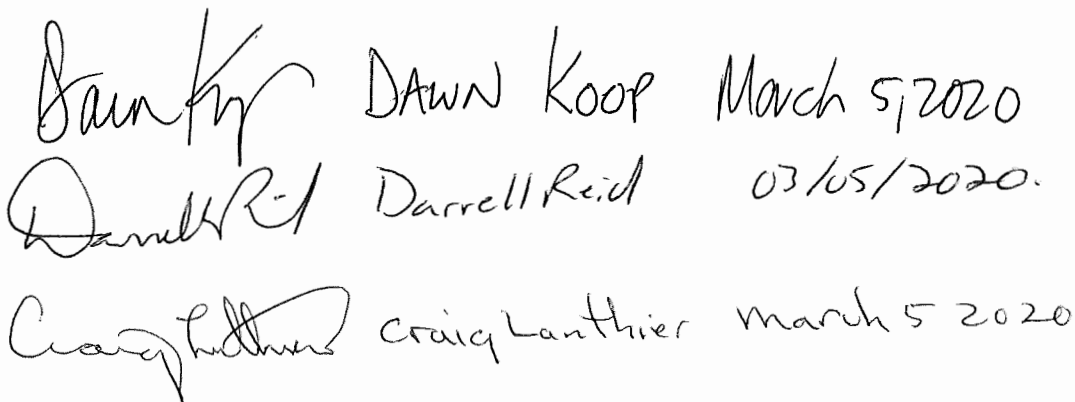 Dawn Koop DAWN KOOP March 5, 2020
Darrell Reid Darrell Reid 03/05/2020.
Craig Lanthier Craig Lanthier March 5 2020